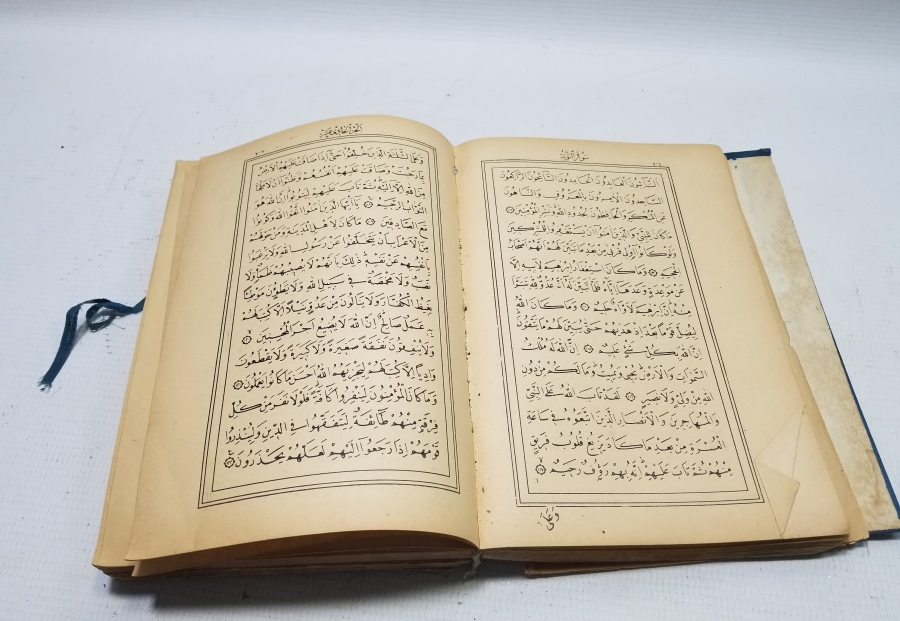 سورة التوبة
اَلتَّائِبُونَ الْعَابِدُونَ الْحَامِدُونَ السَّائِحُونَ الرَّاكِعُونَ
السَّاجِدُونَ الْاٰمِرُونَ بِالْمَعْرُوفِ وَالنَّاهُونَ
عَنِ الْمُنْكَرِ وَالْحَافِظُونَ لِحُدُودِ اللّٰهِ وَبَشِّرِ الْمُؤْمِنِينَ
مَا كَانَ لِلنَّبِيِّ وَالَّذِينَ اٰمَنُوا اَنْ يَسْتَغْفِرُوا لِلْمُشْرِكِينَ
وَلَوْ كَانُوا اُولِي قُرْبٰى مِنْ بَعْدِ مَا تَبَيَّنَ لَهُمْ اَنَّهُمْ اَصْحَابُ
الْجَحِيمِ وَمَا كَانَ اسْتِغْفَارُ اِبْرٰهِيمَ لِاَبِيهِ اِلَّا
عَنْ مَوْعِدَةٍ وَعَدَهَا اِيَّاهُ فَلَمَّا تَبَيَّنَ لَهُ اَنَّهُ عَدُوٌّ لِلّٰهِ تَبَرَّاَ
مِنْهُ اِنَّ اِبْرٰهِيمَ لَاَوَّاهٌ حَلِيمٌ وَمَا كَانَ اللّٰهُ
لِيُضِلَّ قَوْمًا بَعْدَ اِذْ هَدٰيهُمْ حَتّٰى يُبَيِّنَ لَهُمْ مَا يَتَّقُونَ
اِنَّ اللّٰهَ بِكُلِّ شَيْءٍ عَلِيمٌ اِنَّ اللّٰهَ لَهُ مُلْكُ
السَّمٰوَاتِ وَالْاَرْضِ يُحْيِي وَيُمِيتُ وَمَا لَكُمْ مِنْ دُونِ
اللّٰهِ مِنْ وَلِيٍّ وَلَا نَصِيرٍ لَقَدْ تَابَ اللّٰهُ عَلَى النَّبِيِّ
وَالْمُهَاجِرِينَ وَالْاَنْصَارِ الَّذِينَ اتَّبَعُوهُ فِي سَاعَةِ
الْعُسْرَةِ مِنْ بَعْدِ مَا كَادَ يَزِيغُ قُلُوبُ فَرِيقٍ
مِنْهُمْ ثُمَّ تَابَ عَلَيْهِمْ اِنَّهُ بِهِمْ رَؤُفٌ رَحِيمٌ
وَعَلَى
الجزء الحادي عشر
وَعَلَى الثَّلٰثَةِ الَّذِينَ خُلِّفُوا حَتّٰى اِذَا ضَاقَتْ عَلَيْهِمُ الْاَرْضُ
بِمَا رَحُبَتْ وَضَاقَتْ عَلَيْهِمْ اَنْفُسُهُمْ وَظَنُّوا اَنْ لَا مَلْجَاَ
مِنَ اللّٰهِ اِلَّا اِلَيْهِ ثُمَّ تَابَ عَلَيْهِمْ لِيَتُوبُوا اِنَّ اللّٰهَ هُوَ
التَّوَّابُ الرَّحِيمُ يَا اَيُّهَا الَّذِينَ اٰمَنُوا اتَّقُوا اللّٰهَ وَكُونُوا
مَعَ الصَّادِقِينَ مَا كَانَ لِاَهْلِ الْمَدِينَةِ وَمَنْ حَوْلَهُمْ
مِنَ الْاَعْرَابِ اَنْ يَتَخَلَّفُوا عَنْ رَسُولِ اللّٰهِ وَلَا يَرْغَبُوا
بِاَنْفُسِهِمْ عَنْ نَفْسِهِ ذٰلِكَ بِاَنَّهُمْ لَا يُصِيبُهُمْ ظَمَاٌ وَلَا
نَصَبٌ وَلَا مَخْمَصَةٌ فِي سَبِيلِ اللّٰهِ وَلَا يَطَؤُنَ مَوْطِئًا
يَغِيظُ الْكُفَّارَ وَلَا يَنَالُونَ مِنْ عَدُوٍّ نَيْلًا اِلَّا كُتِبَ لَهُمْ
بِهِ عَمَلٌ صَالِحٌ اِنَّ اللّٰهَ لَا يُضِيعُ اَجْرَ الْمُحْسِنِينَ
وَلَا يُنْفِقُونَ نَفَقَةً صَغِيرَةً وَلَا كَبِيرَةً وَلَا يَقْطَعُونَ
وَادِيًا اِلَّا كُتِبَ لَهُمْ لِيَجْزِيَهُمُ اللّٰهُ اَحْسَنَ مَا كَانُوا يَعْمَلُونَ
وَمَا كَانَ الْمُؤْمِنُونَ لِيَنْفِرُوا كَافَّةً فَلَوْلَا نَفَرَ مِنْ كُلِّ
فِرْقَةٍ مِنْهُمْ طَائِفَةٌ لِيَتَفَقَّهُوا فِي الدِّينِ وَلِيُنْذِرُوا
قَوْمَهُمْ اِذَا رَجَعُوا اِلَيْهِمْ لَعَلَّهُمْ يَحْذَرُونَ